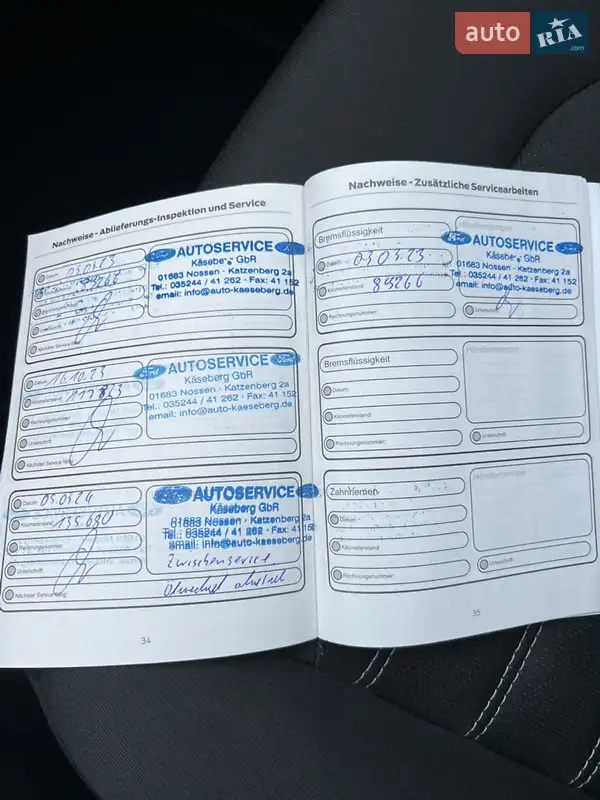 auto RIA
.com
Nachweise - Ablieferungs-Inspektion und Service
Datum 03.03.23
Nächster Service fällig:
Ford AUTOSERVICE Ford
Käseberg GbR
01683 Nossen · Katzenberg 2a
Tel.: 035244 / 41 262 · Fax: 41 152
email: info@auto-kaeseberg.de
Datum 16.10.23
Kilometerstand
Rechnungsnummer:
Unterschrift
Nächster Service fällig:
Ford AUTOSERVICE Ford
Käseberg GbR
01683 Nossen · Katzenberg 2a
Tel.: 035244 / 41 262 · Fax: 41
email: info@auto-kaeseberg.de
Datum 05.03.24
Kilometerstand 135.690
Rechnungsnummer:
Unterschrift
Nächster Service fällig:
AUTOSERVICE
Käseberg GbR
01683 Nossen · Katzenberg 2a
Tel.: 035244 / 41 262 · Fax: 41 152
email: info@auto-kaeseberg.de
Zwischenservice
34
Nachweise - Zusätzliche Servicearbeiten
Bremsflüssigkeit
Datum: 03.03.23
Kilometerstand:
Rechnungsnummer:
Händlerstempel
Ford AUTOSERVICE Ford
Käseberg GbR
01683 Nossen · Katzenberg 2a
Tel.: 035244 / 41 262 · Fax: 41 152
email: info@auto-kaeseberg.de
Unterschrift
Bremsflüssigkeit
Datum:
Kilometerstand:
Rechnungsnummer:
Händlerstempel
Unterschrift
Zahnriemen
Datum:
Kilometerstand:
Rechnungsnummer:
Händlerstempel
Unterschrift
35